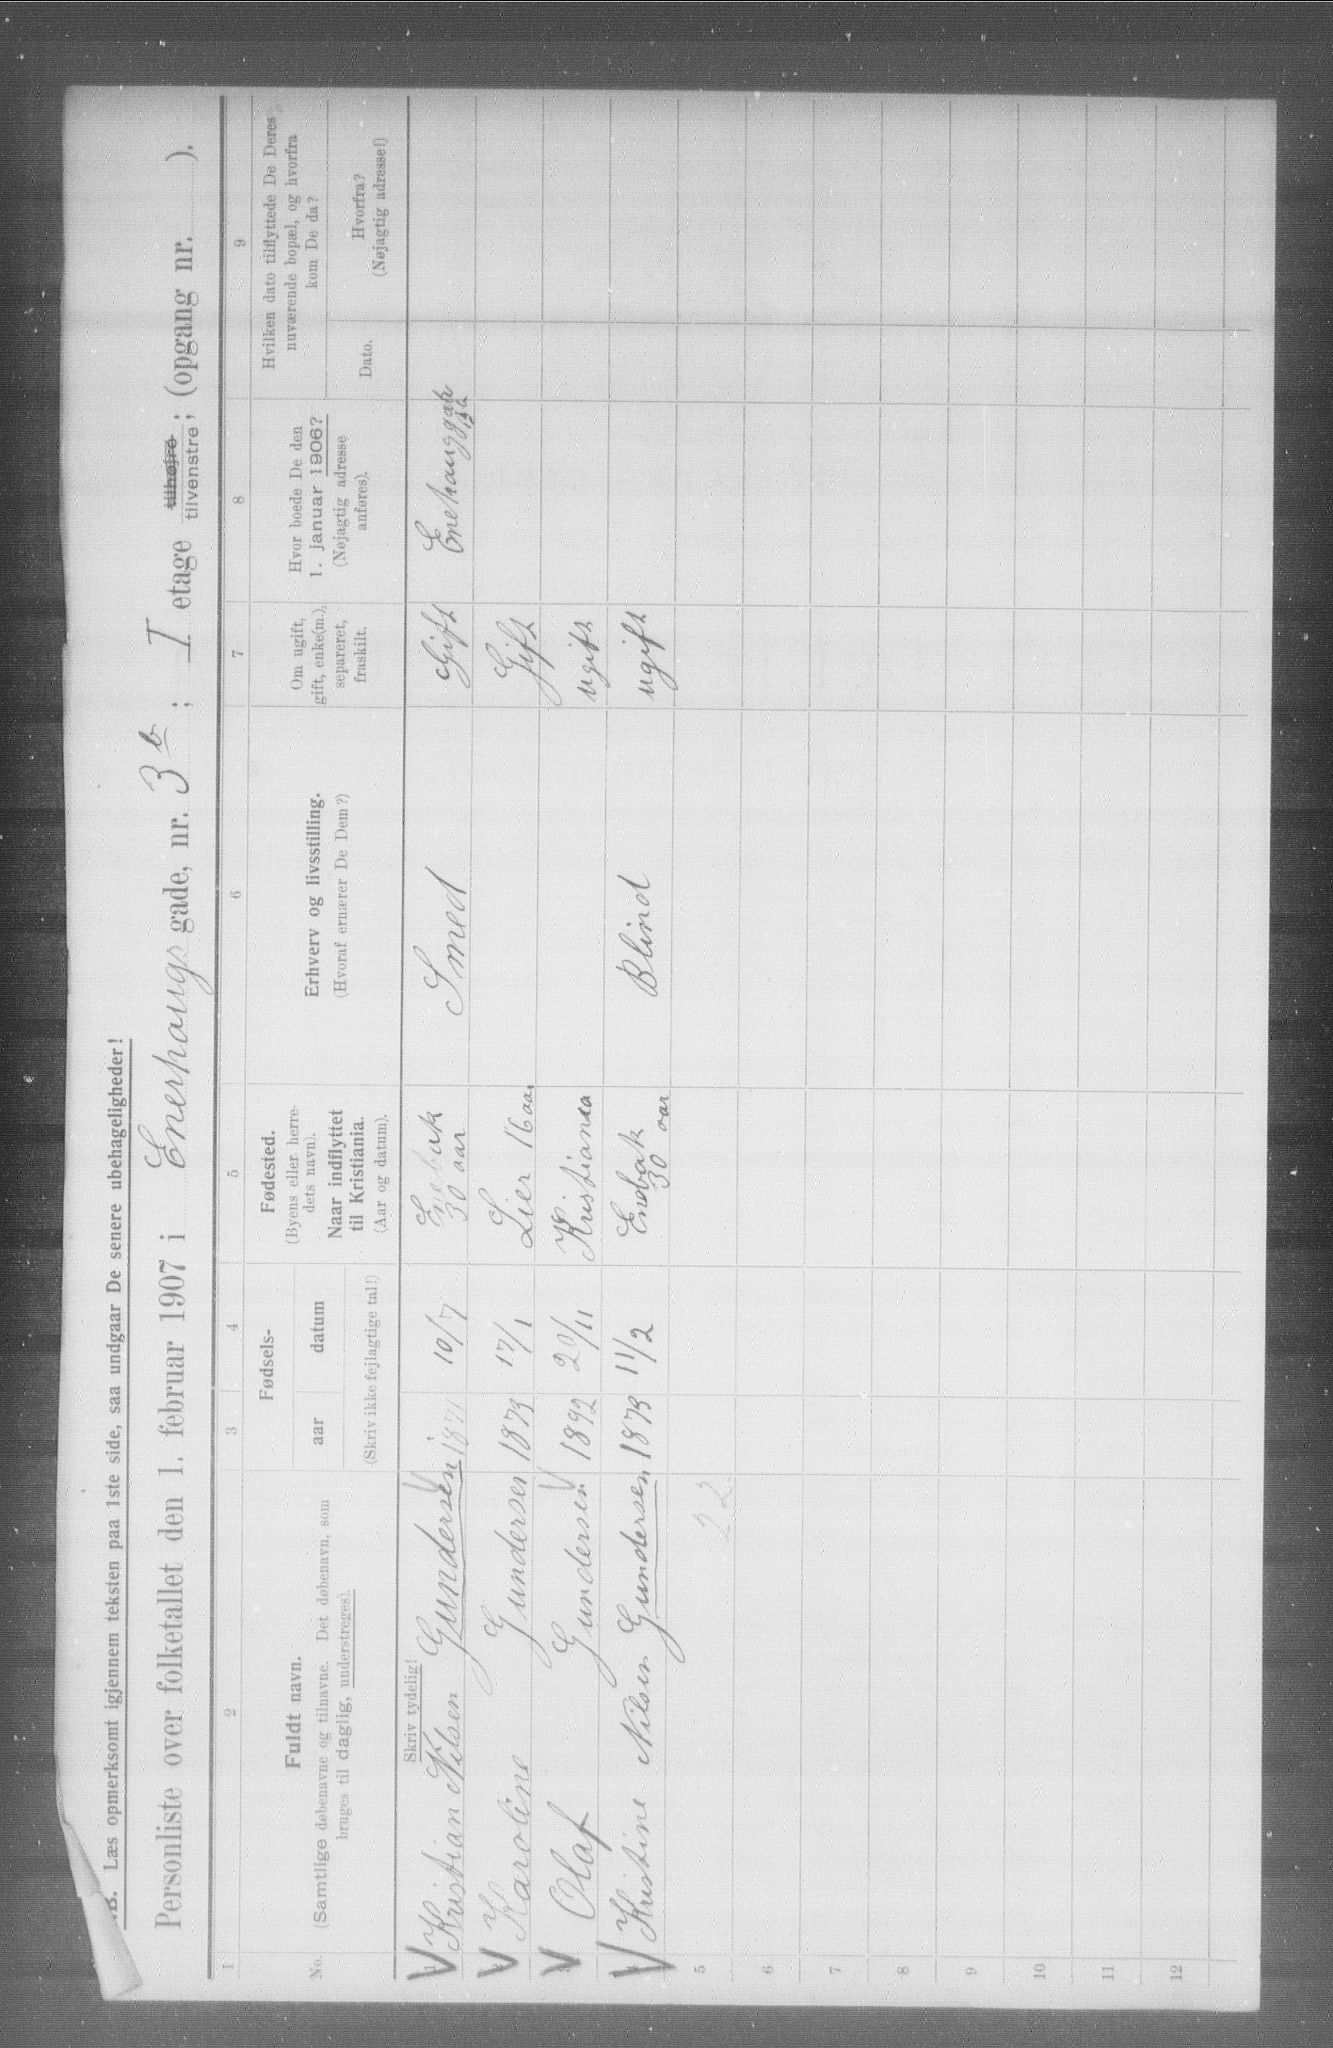 NB. Læs opmerksomt igjennem teksten paa 1ste side, saa undgaar De senere ubehageligheder!
Personliste over folketallet den 1. februar 1907 i Enerhaugs gade, nr. 3b; I etage tilhøjre; tilvenstre; (opgang nr. ).
1 2 3 4 5 6 7 8 9
No.
Fuldt navn.
(Samtlige døbenavne og tilnavne. Det døbenavn, som
bruges til daglig, understreges).
Fødsels-
aar datum
(Skriv ikke fejlagtige tal!)
Fødested.
(Byens eller herre-
dets navn).
Naar indflyttet
til Kristiania.
(Aar og datum).
Erhverv og livsstilling.
(Hvoraf ernærer De Dem?)
Om ugift,
gift, enke(m.),
separeret,
fraskilt.
Hvor boede De den
1. januar 1906?
(Nøjagtig adresse
anføres).
Hvilken dato tilflyttede De Deres
nuværende bopæl, og hvorfra
kom De da?
Dato.
Hvorfra?
(Nøjagtig adresse!)
Skriv tydelig!
1 Kristian Nilsen Gundersen 1871 10/7 Enebak 30 aar Smed Gift
Karoline Gundersen 1873 17/1 Lier 16 aar Gift
3 Olaf Gundersen 1892 20/11 Kristiania ugift
Kristine Nilsen Gundersen 1873 11/2 Enebak 30 aar Blind ugift
5 22
6
7
8
9
10
11
12